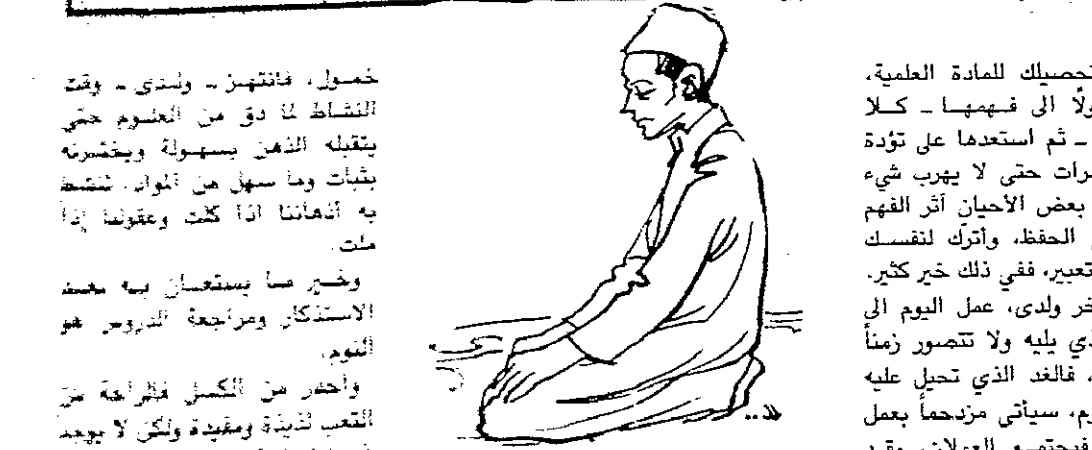 تحصيلك للمادة العلمية،
ولًا الى فهمها ـ كلا
ـ ثم استعدها على تؤدة
رات حتى لا يهرب شيء
بعض الأحيان آثر الفهم
الحفظ، وأترك لنفسك
تعبير، ففي ذلك خير كثير.
خر ولدى، عمل اليوم الى
ذي يليه ولا تتصور زمناً
، فالغد الذي تحيل عليه
م، سيأتى مزدحماً بعمل
فيجتمع العملان، وقد
خمول، فانتهز ـ ولدى ـ وقت
النشاط لما دق من العلوم حتى
يتقبله الذهن بسهولة ويختزنه
بثبات وما سهل من المواد، لننشط
به أذهاننا اذا كلت وعقولنا إذا
ملت.
وخير ما يستعان به بعد
الاستذكار ومراجعة الدروس هو
النوم.
وأحذر من الكسل فالراحة من
التعب لذيذة ومفيدة ولكن لا يوجد